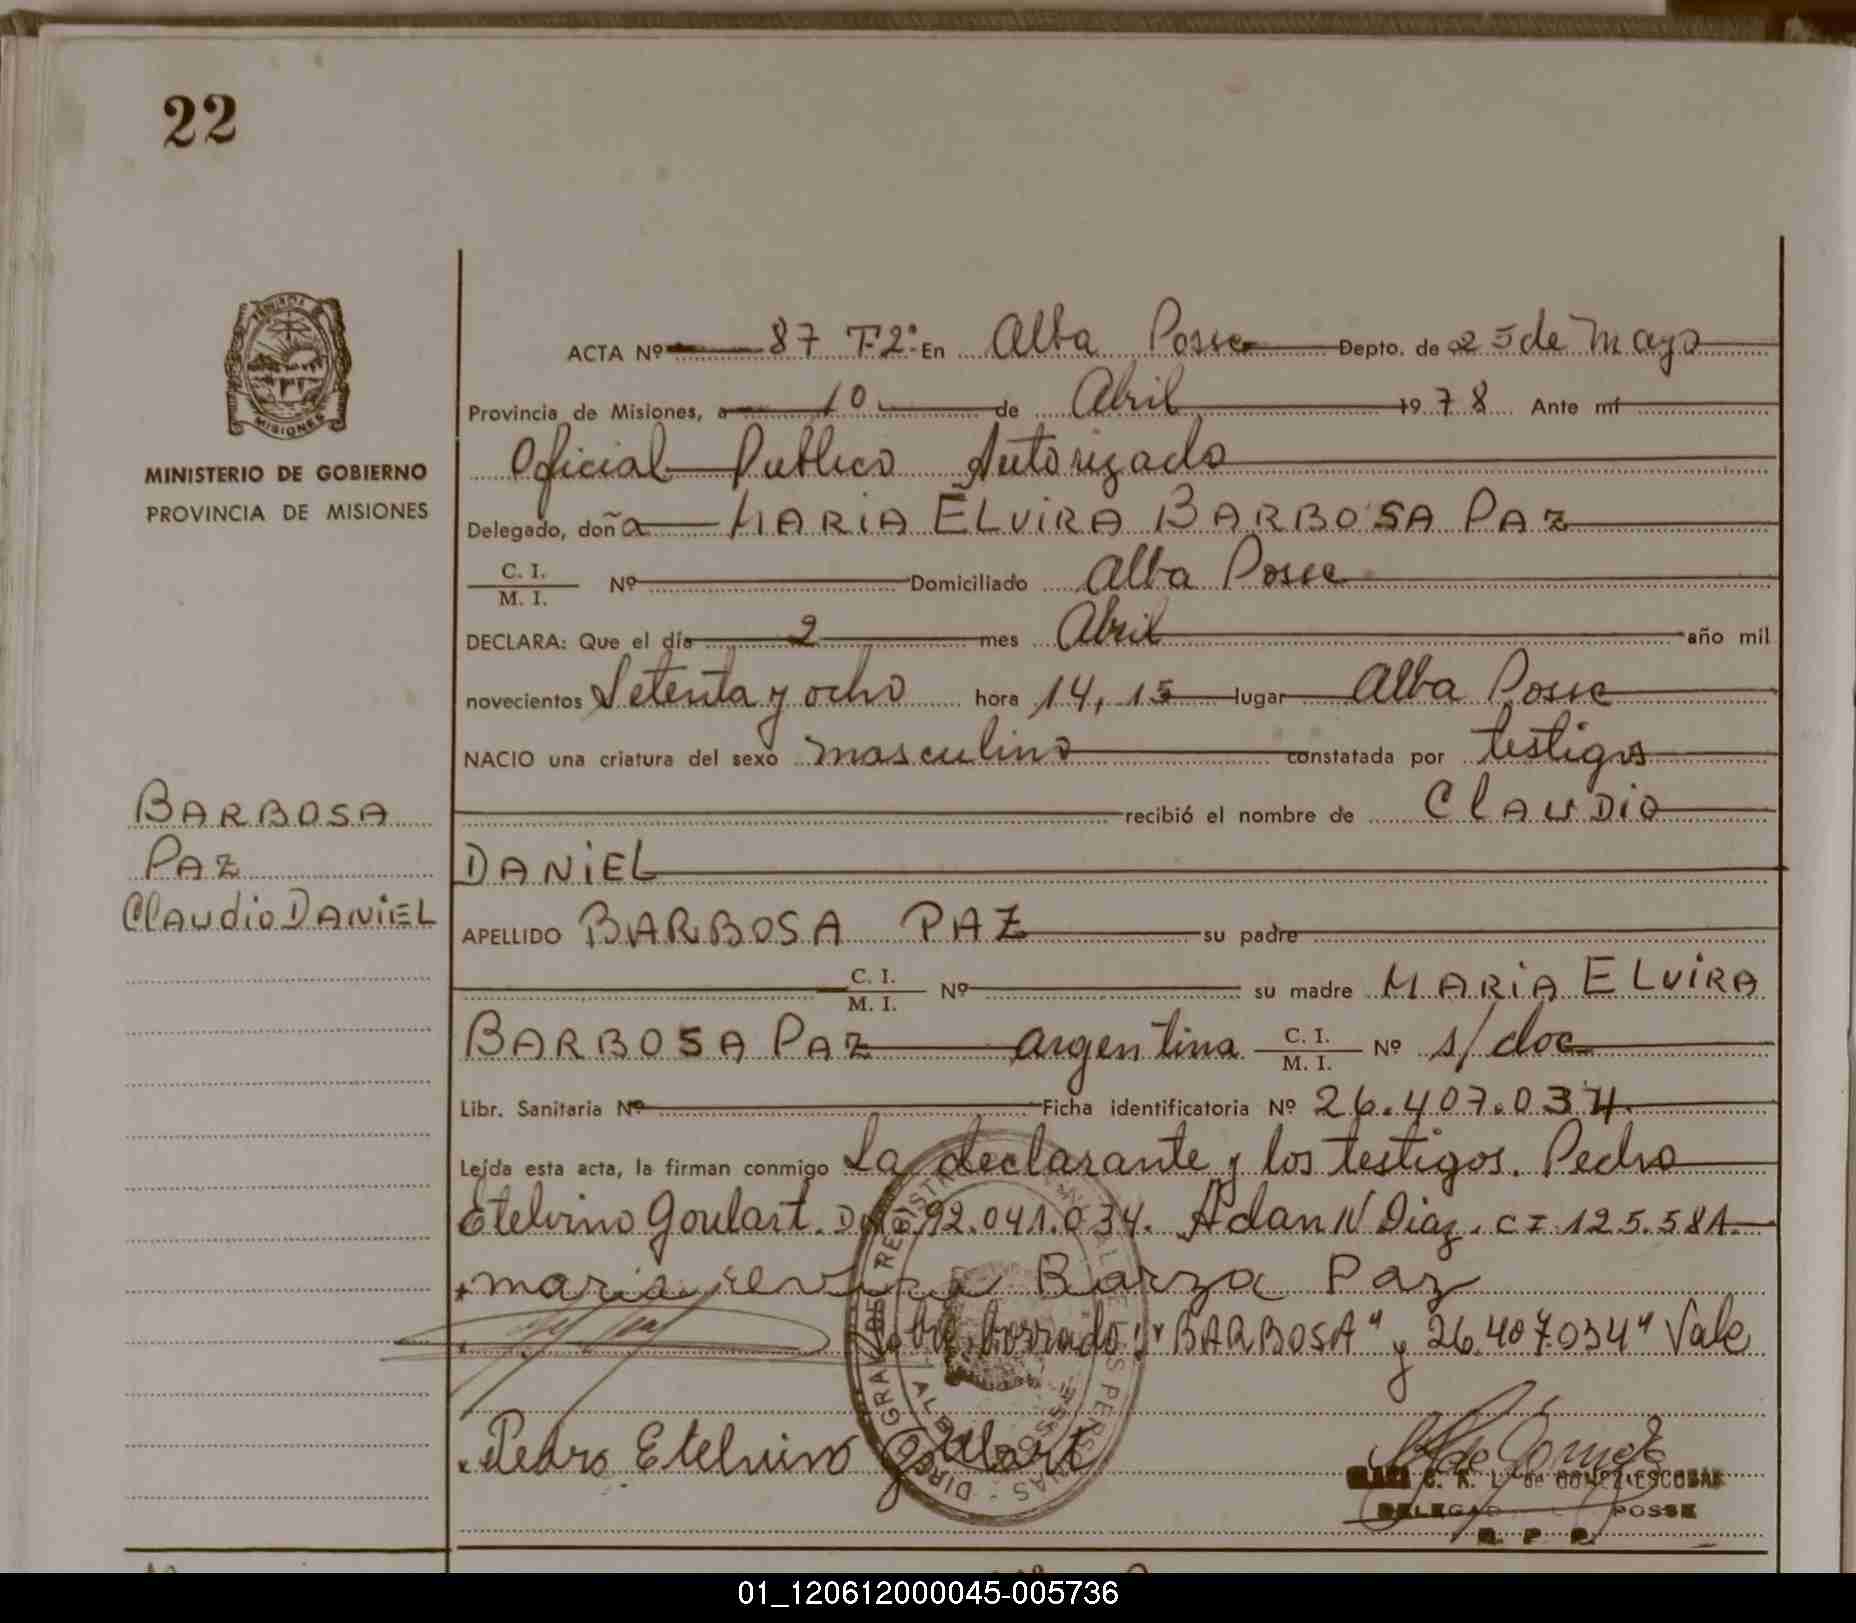 22
MISIONES
MINISTERIO DE GOBIERNO
PROVINCIA DE MISIONES
BARBOSA
PAZ
Claudio DANIEL
ACTA Nº 87 T-2º En Alba Posse Depto. de 25 de Mayo
Provincia de Misiones, a 10 de Abril 1978 Ante mí
Oficial Publico Autorizado
Delegado, doña MARIA ELVIRA BARBOSA PAZ
C. I.
M. I. Nº Domiciliado Alba Posse
DECLARA: Que el día 2 mes Abril año mil
novecientos Setenta y ocho hora 14,15 lugar Alba Posse
NACIO una criatura del sexo masculino constatada por testigos
recibió el nombre de CLAUDIO
DANIEL
APELLIDO BARBOSA PAZ su padre
C. I.
M. I. Nº su madre MARIA ELVIRA
BARBOSA PAZ argentina C. I.
M. I. Nº s/doc
Libr. Sanitaria Nº Ficha identificatoria Nº 26.407.034
Leída esta acta, la firman conmigo La declarante y los testigos. Pedro
Etelvino Goulart. DNI 92.041.034. Adan N Diaz. CI 125.581
maria Barza Paz
borrado: "BARBOSA" y 26.407.034" Vale
Pedro Etelvino Goulart
C. R. L. de GOMEZ ESCOBAR
POSSE
R. P. P.
01_120612000045-005736